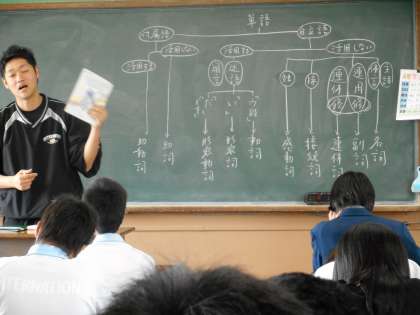 単語
付属語
自立語
活用する
活用しない
活用する
活用しない
述語
主語
連体修
連用修
接
独
ウ段
い
だ
名詞
副詞
連体詞
接続詞
感動詞
動詞
形容詞
形容動詞
助詞
助動詞